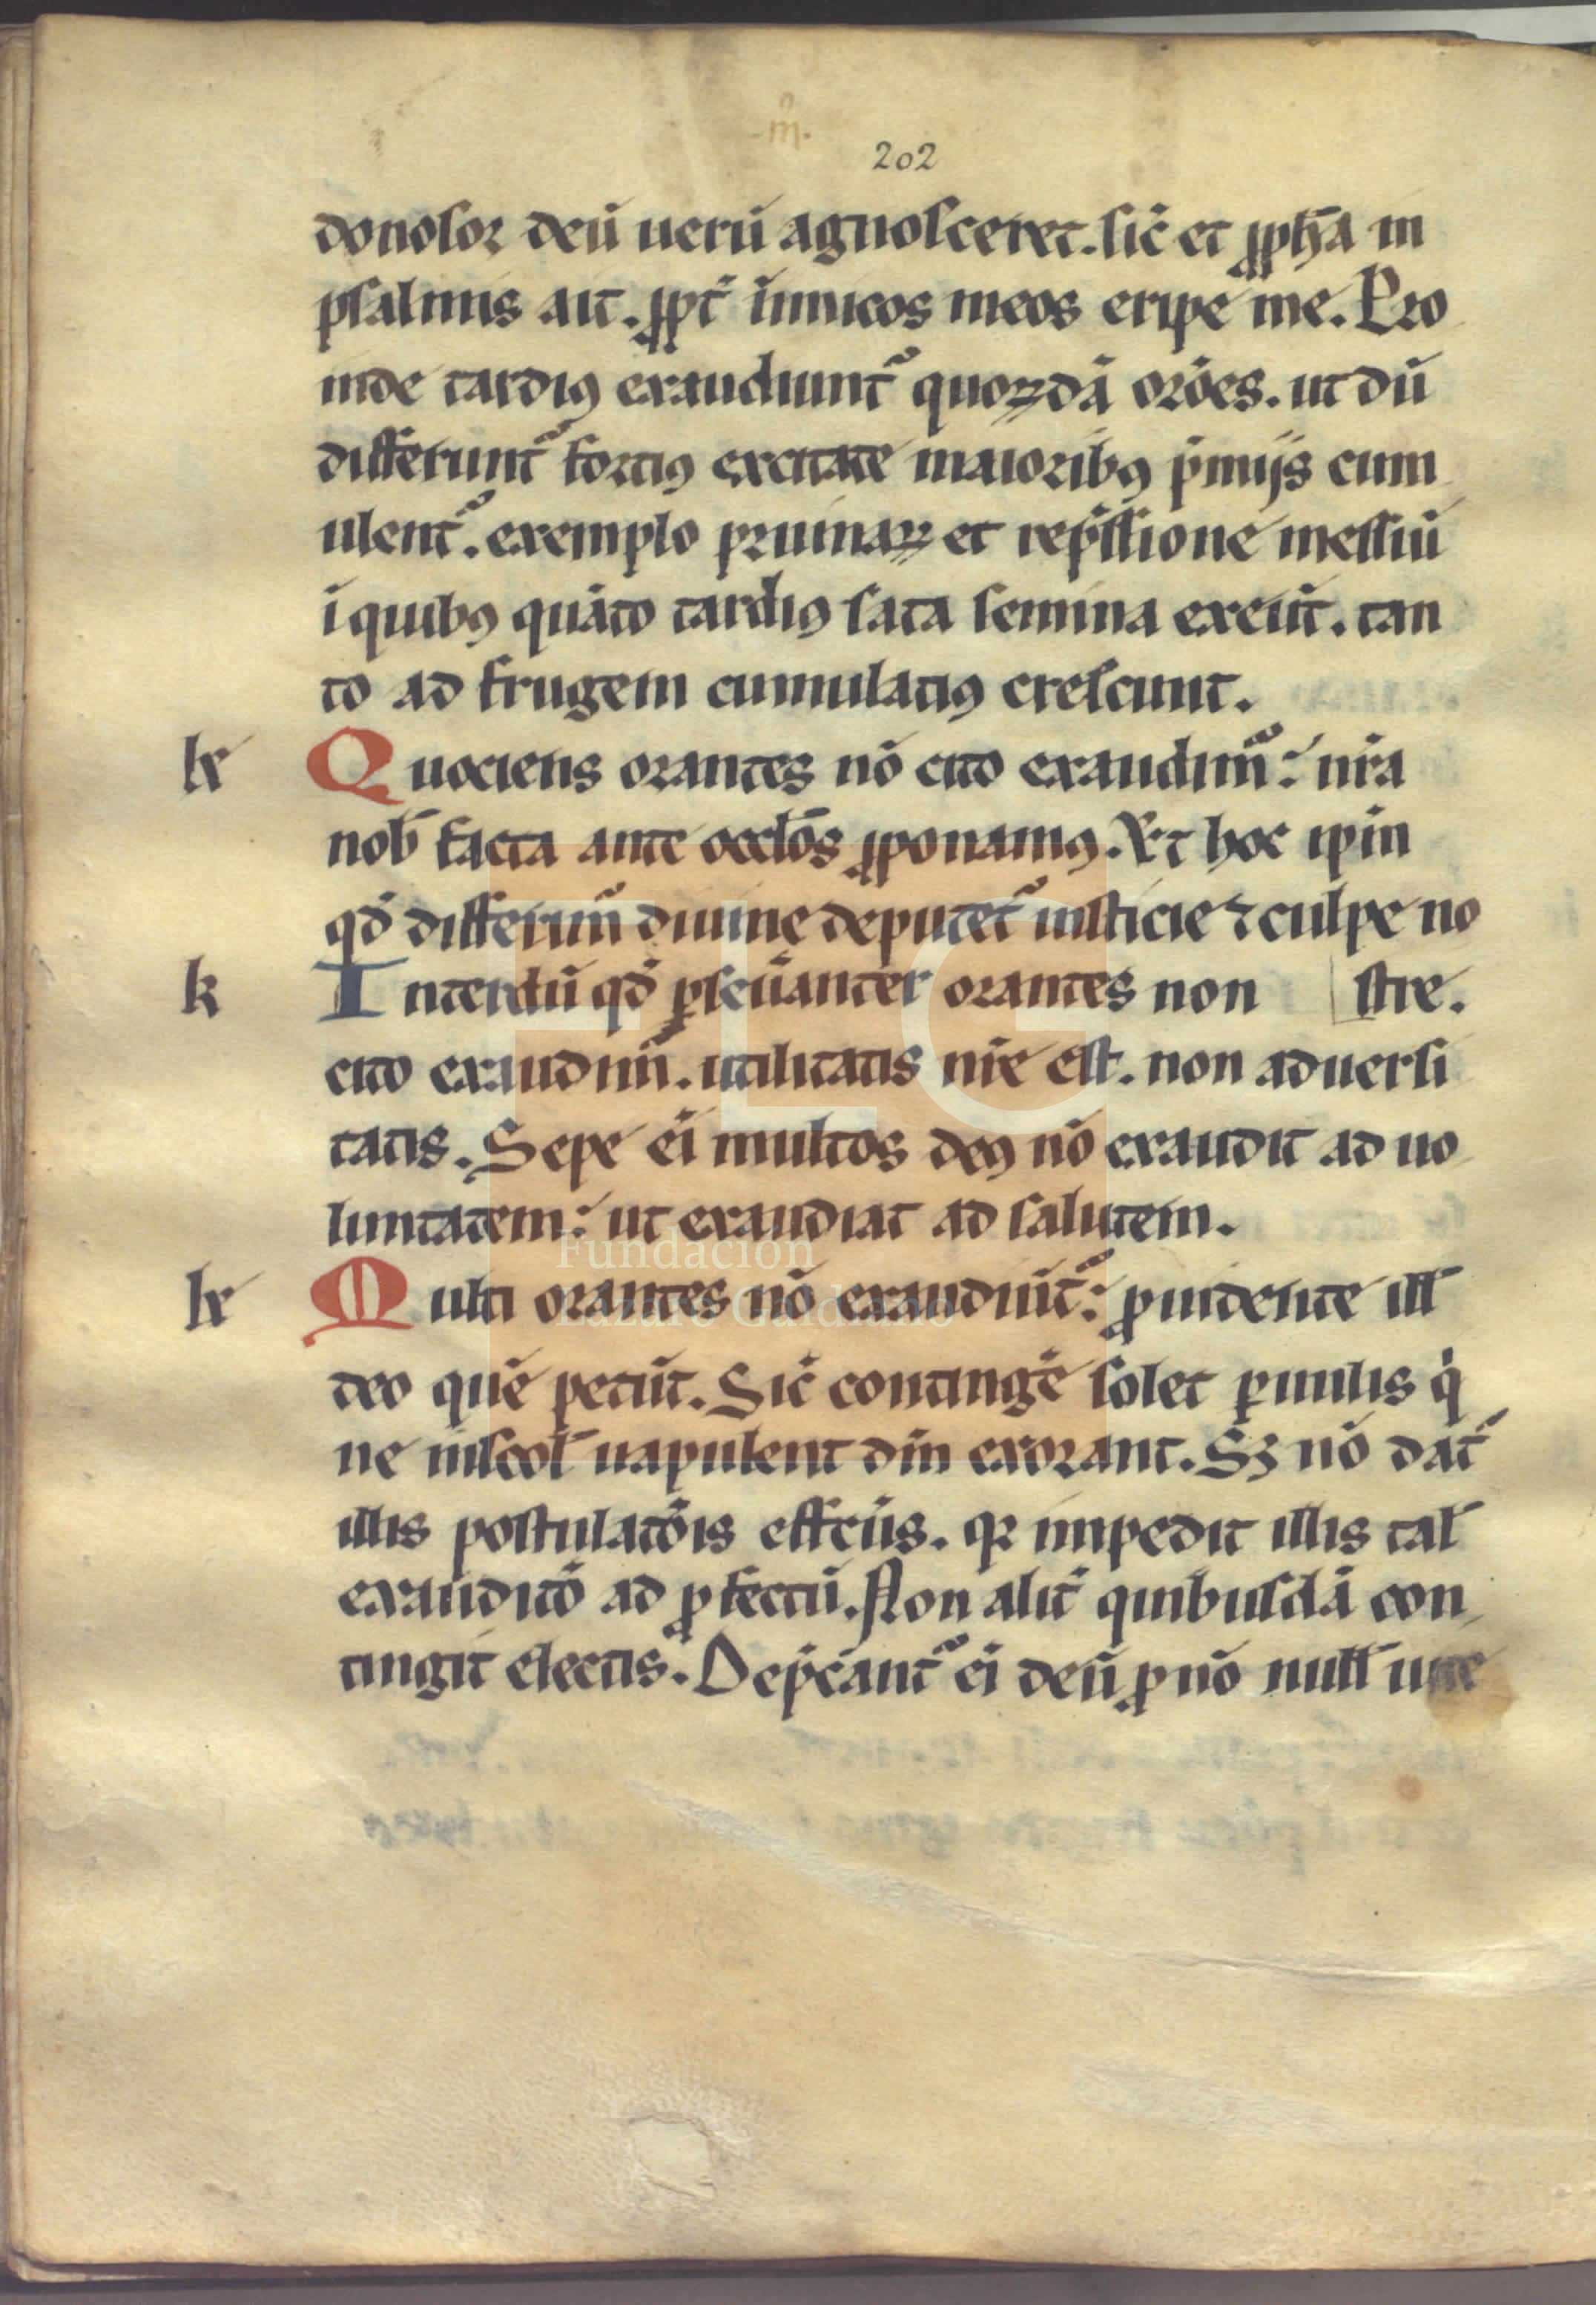 m̃.
202
donosor deū uerū agnosceret. sic̄ et ꝓph̄a in
psalmis ait. ꝓpt̄ īimicos meos eripe me. Pro
inde tardiꝰ exaudiunt᷑ quoꝝdā orōes. ut dū
differunt᷑ fortius excitate maioribꝰ p̄mijs cum
ulent᷑. exemplo pruinaꝝ et rep̄ssione messiū
ī quibꝰ quāto tardiꝰ sata semina exeūt. tan
to ad frugem cumulatiꝰ crescunt.
lx Quociens orantes nō cito exaudim᷑: nr̄a
nob̄ facta ante occl̄os ꝓponamꝰ. Et hoc ip̄m
qd̄ differim᷑ diuine deputet᷑ iusticie ⁊ culpe no
k Interdū qd̄ ꝑseūanter orantes non stre.
cito exaudim̄. utilitatis nr̄e est. non aduersi
tatis. Sepe ei̅ multos deꝰ nō exaudit ad uo
luntatem: ut exaudiat ad salutem.
lx Multi orantes nō exaudiūt᷑: ꝓuidente ill̄
deo quē petūt. Sic̄ contingē solet ꝑuulis q̄
ne ī scol̄ uapulent dm̄ exorant. Sꝫ nō dat᷑
illis postulatōis effcūs. qꝛ impedit illis tal̄
exauditō ad ꝓfectū. Non alit̄ quibusdā con
tingit electis. Dep̄cant᷑ ei̅ deū ꝓ nō null̄ uite
Fundación
Lázaro Galdiano
FLG